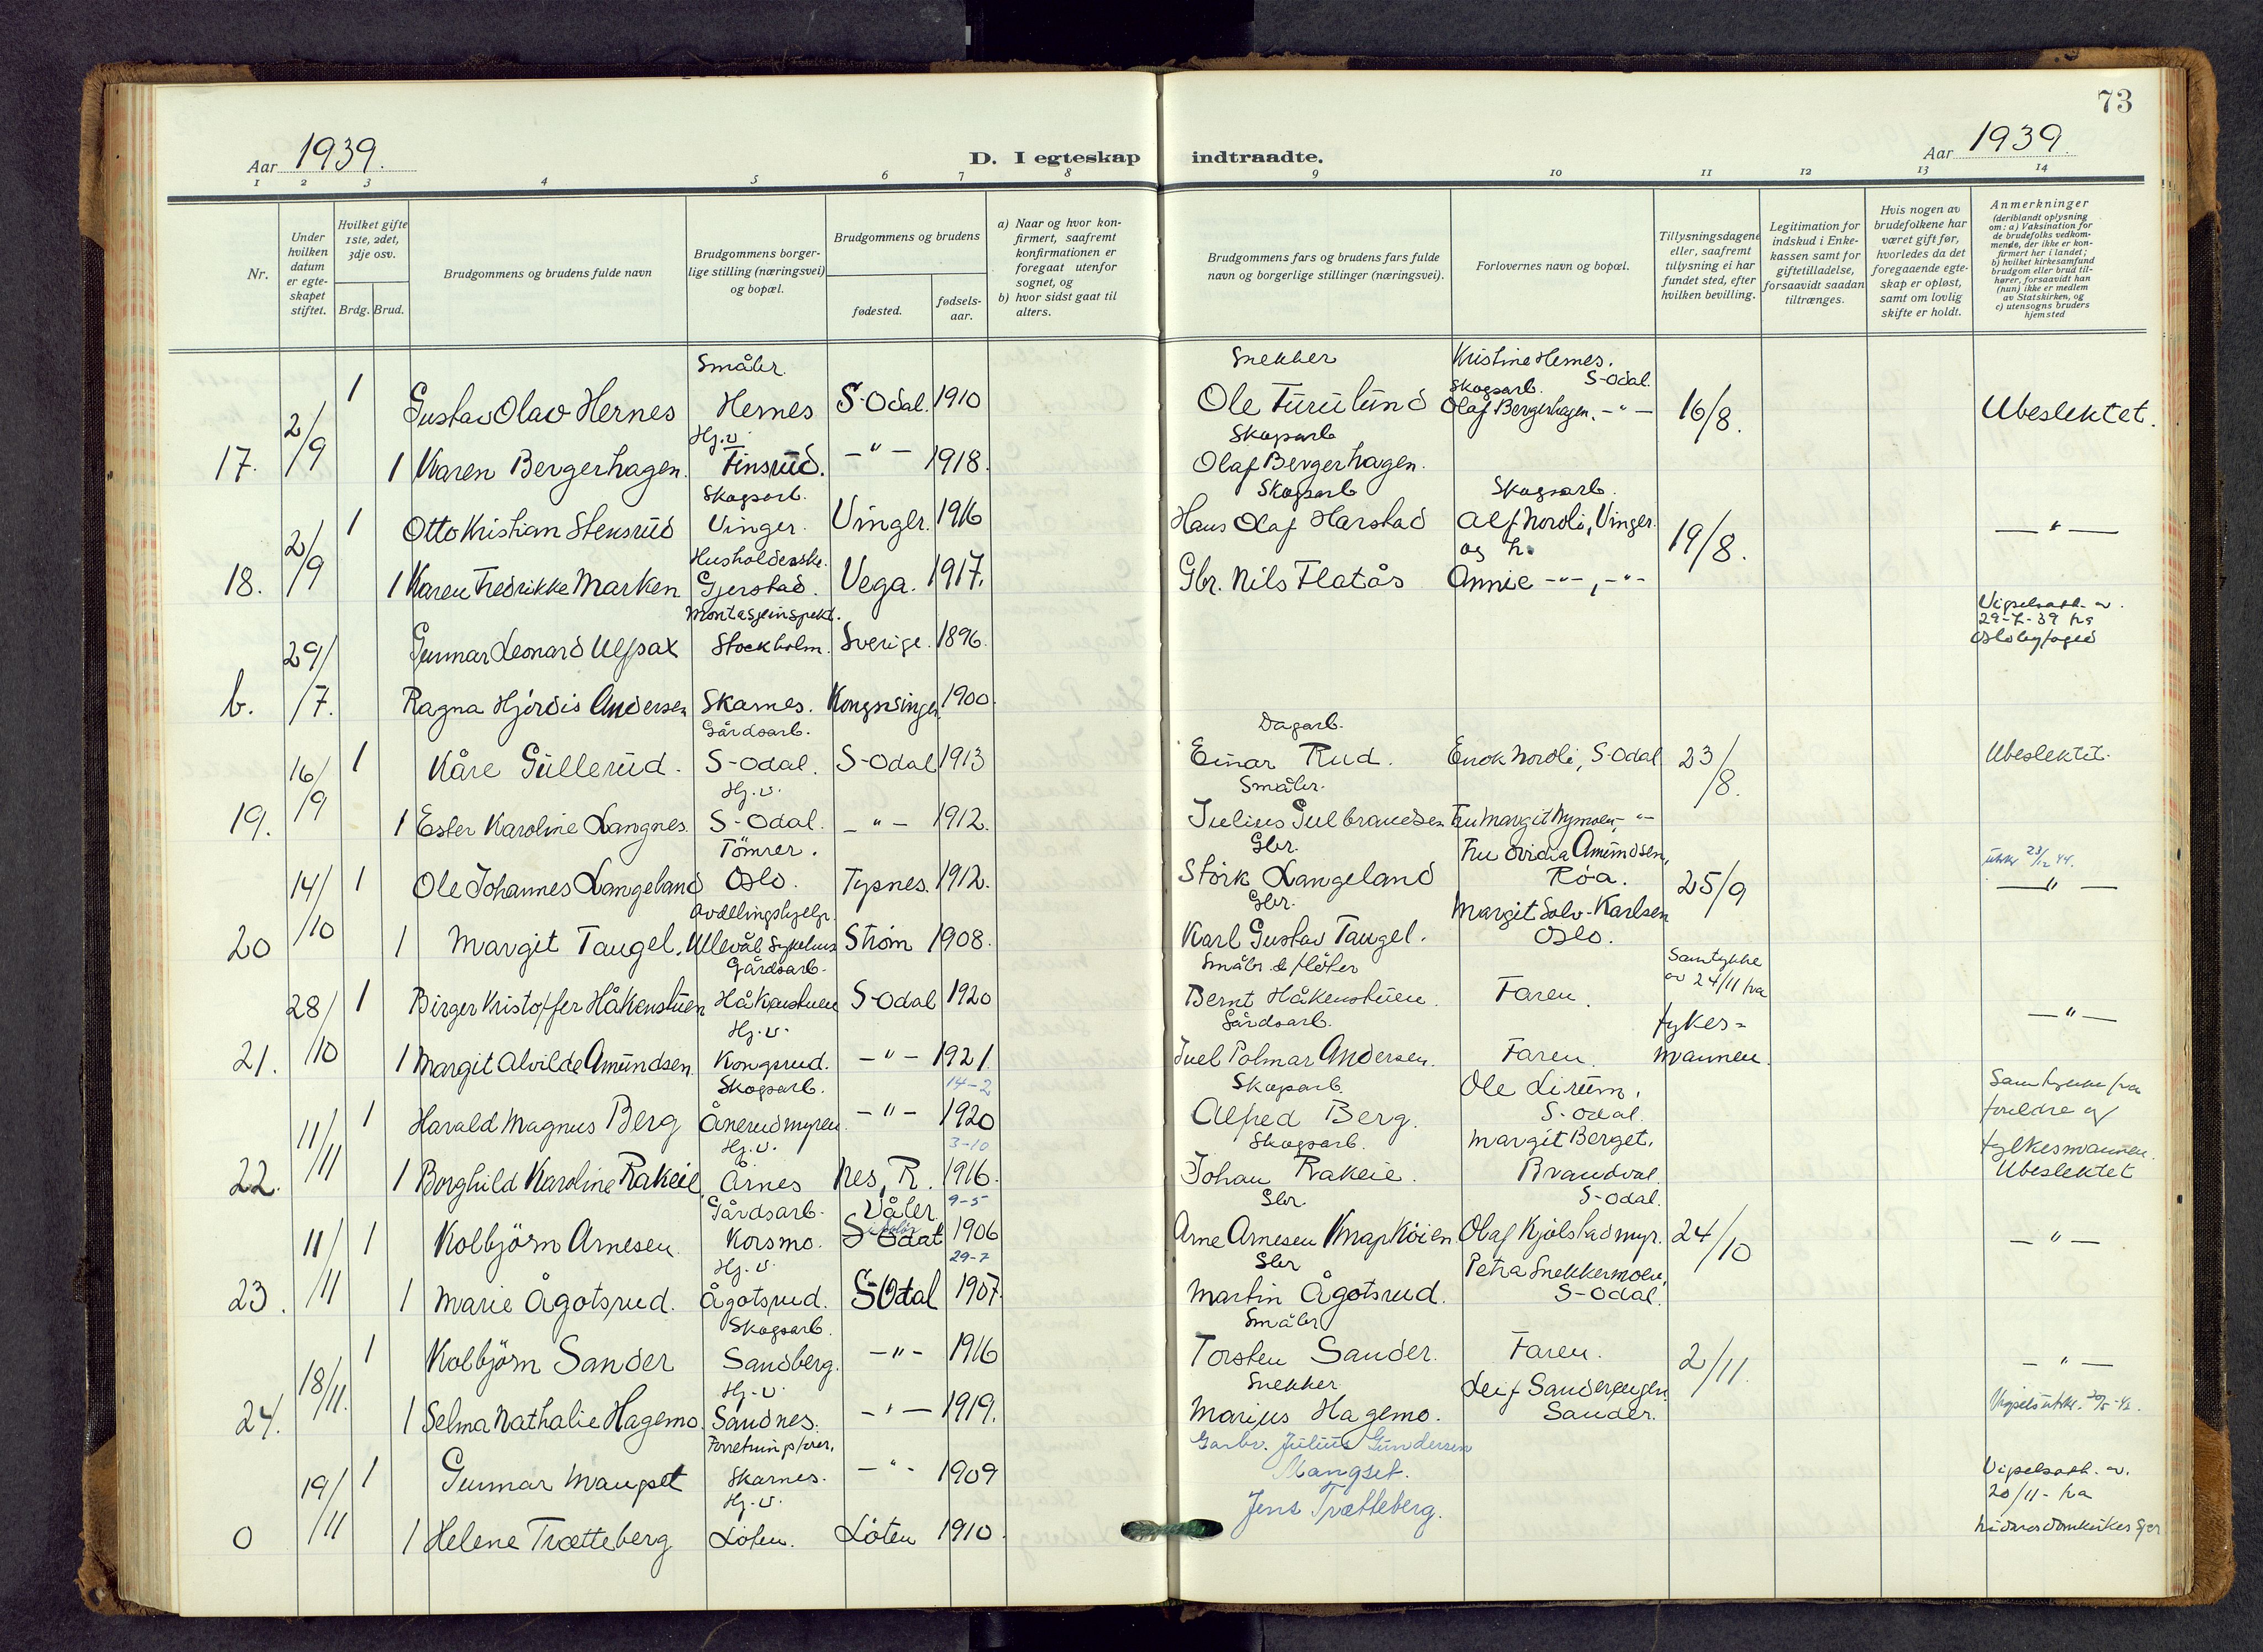 73
Aar 1939.
D. I egteskap indtraadte.
Aar 1939.
1 2 3 4 5 6 7 8 9 10 11 12 13 14
Nr.
Under hvilken datum er egteskapet stiftet.
Hvilket gifte 1ste, 2det, 3dje osv.
Brdg. Brud.
Brudgommens og brudens fulde navn
Brudgommens borgerlige stilling (næringsvei) og bopæl.
Brudgommens og brudens
fødested.
fødselsaar.
a) Naar og hvor konfirmert, saafremt konfirmationen er foregaat utenfor sognet, og
b) hvor sidst gaat til alters.
Brudgommens fars og brudens fars fulde navn og borgerlige stillinger (næringsvei).
Forlovernes navn og bopæl.
Tillysningsdagene eller, saafremt tillysning ei har fundet sted, efter hvilken bevilling.
Legitimation for indskud i Enkekassen samt for giftetilladelse, forsaavidt saadan tiltrænges.
Hvis nogen av brudefolkene har været gift før, hvorledes da det foregaaende egteskap er opløst, samt om lovlig skifte er holdt.
Anmerkninger
(deriblandt oplysning om: a) Vaksination for de brudefolks vedkommende, der ikke er konfirmert her i landet; b) hvilket kirkesamfund brudgom eller brud tilhører, forsaavidt han (hun) ikke er medlem av Statskirken, og c) utensogns bruders hjemsted
Småbr. Snekker Kristine Hernes.
S-Odal.
1 Gustav Olav Hernes Hernes S-Odal. 1910 Ole Furulund Skogsarb. Olaf Bergerhagen. -"- 16/8. Ubeslektet.
17. 2/9 Hj.v. Skogsarb
1 Karen Bergerhagen. Finsrud. -"- 1918. Olaf Bergerhagen.
Skogsarb. Skogsarb Skogsarb.
1 Otto Kristian Stensrud Vinger. Vinger. 1916 Hans Olaf Harstad Alf Nordli, Vinger. 19/8. -"-
18. 2/9 Husholderske. og h.
1 Karen Fredrikke Marken Gjerstad. Vega. 1917. Gbr. Nils Flatås Annie -"-, -"-
Montasjeinspekt. Vigselsatt. av
29-7-39 fra
29/7. Gunnar Leonard Ulfsax Stockholm. Sverige. 1896. Oslo byfoged
b. Ragna Hjördis Andersen Skarnes. Kongsvinger. 1900.
Gårdsarb. Dagarb.
16/9 1 Kåre Gullerud. S-Odal. S-Odal 1913 Einar Rud. Enok Nordli, S-Odal 23/8. Ubeslektet.
Hj.v. Småbr.
19. 1 Ester Karoline Langnes. S-Odal. -"- 1912. Julius Gulbrandsen Fru Margit Nymoen, -"-
Tömrer. Gbr. Fru Ovidia Amundsen, utskr 23/12 44.
14/10 1 Ole Johannes Langeland Oslo. Tysnes. 1912. Störk Langeland Röa. 25/9 -"-
Avdelingshjelp. Gbr. Margit Solv-Karlsen
20 1 Margit Taugel. Ullevål Sykehus Ström 1908. Karl Gustav Taugel. Oslo.
Gårdsarb. Småbr. & flöter Samtykke
av 24/11 fra
28/10 1 Birger Kristoffer Håkenstuen Håkenstuen S-Odal 1920 Bernt Håkenstuen. Faren. fykes= -"-
Hj.v. Gårdsarb.
21. 1 Margit Alvilde Amundsen. Kongsrud. -"- 1921. Juel Palmar Andersen. Faren. mannen.
Skogsarb. 14-2 Skogsarb. Ole Lirum, Samtykke fra
11/11 1 Harald Magnus Berg Ånerudmyren. -"- 1920 Alfred Berg. S-Odal. foreldre og
Hj.v. 3-10 Skogsarb. Margit Berget, fylkesmannen.
22. 1 Borghild Karoline Rakeie Årnes Nes, R. 1916. Johan Rakeie. Brandval. Ubeslektet
Gårdsarb. Våler i Solör 9-5 Gbr. S-Odal.
11/11 1 Kolbjörn Arnesen. Korsmo. S-Odal 1906 Arne Arnesen Knapköien Olaf Kjölstadmyr. 24/10 -"-
Hj.v. 29-7 Gbr Petra Snekkermoen,
23. 1 Marie Ågotsrud. Ågotsrud. S-Odal 1907. Martin Ågotsrud. S-Odal.
Skogsarb. Småbr
18/11. 1 Kolbjörn Sander Sandberg. -"- 1916 Torsten Sander. Faren. 2/11. -"-
Hj.v. Snekker Leif Sanderengen
24. 1 Selma Nathalie Hagemo. Sandnes. -"- 1919. Marius Hagemo. Sander.
Forretningsförer. Garbr. Julius Gundersen
19/11 1 Gunnar Mangset Skarnes. -"- 1909 Mangset. Vigselsatt. av.
Hj.v. Jens Trætteberg. 20/11- fra
0 1 Helene Trætteberg Löten. Löten 1910. Nidaros domkirkes Spr